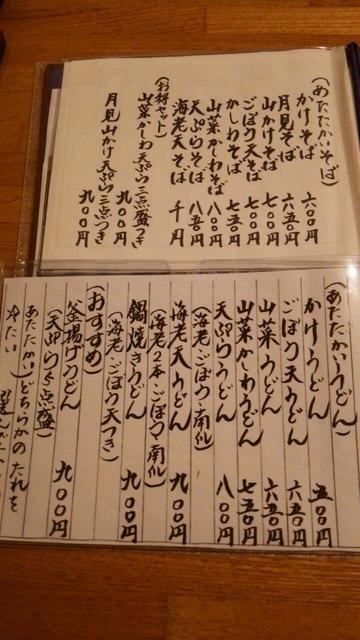 (あたたかいそば)
かけそば 六〇〇円
月見そば 六五〇円
山かけそば 七〇〇円
ごぼう天そば 七〇〇円
かしわそば 七五〇円
山菜かしわそば 八〇〇円
天ぷらそば 八五〇円
海老天そば 千円
(お得セット)
山菜かしわ天ぷら三点盛つき 九〇〇円
月見山かけ天ぷら三点つき 九〇〇円
(あたたかいうどん)
かけうどん 五〇〇円
ごぼう天うどん 六五〇円
山菜うどん 六五〇円
山菜かしわうどん 七五〇円
天ぷらうどん 八〇〇円
(海老・ごぼう・南仙)
海老天うどん 九〇〇円
(海老2本・ごぼう・南仙)
鍋焼きうどん 九〇〇円
(海老・ごぼう天つき)
(おすすめ)
釜揚げうどん 九〇〇円
(天ぷら5点盛)
あたたかい)どちらかのたれを
冷たい